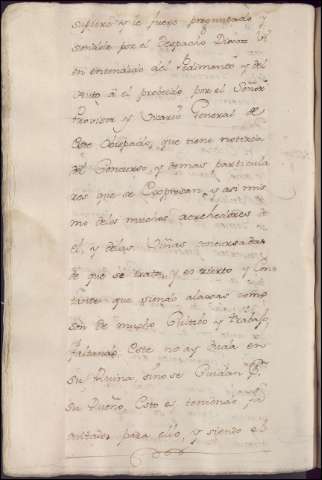 supiere, y le fuere preguntado y
por el Despacho Dixo:
en entendido del Pedimento y del
Auto a el proveido por el Señor
Provisor y Vicario General de
este Obispado, que tiene noticia
del Concurso, y demas particula
res que se Expresan, y asi mis
mo de los muchos acrehedores de
el, y delas Viñas concursadas
de que se trata, y es cierto y cons
tante que siendo alajas como
son de mucho Cuidado y trabajo,
faltando Este no ay duda en
su Ruina, sino se Cuidan Pr.
su Dueño, Esto es teniendo fa
cultades para ello, y siendo el